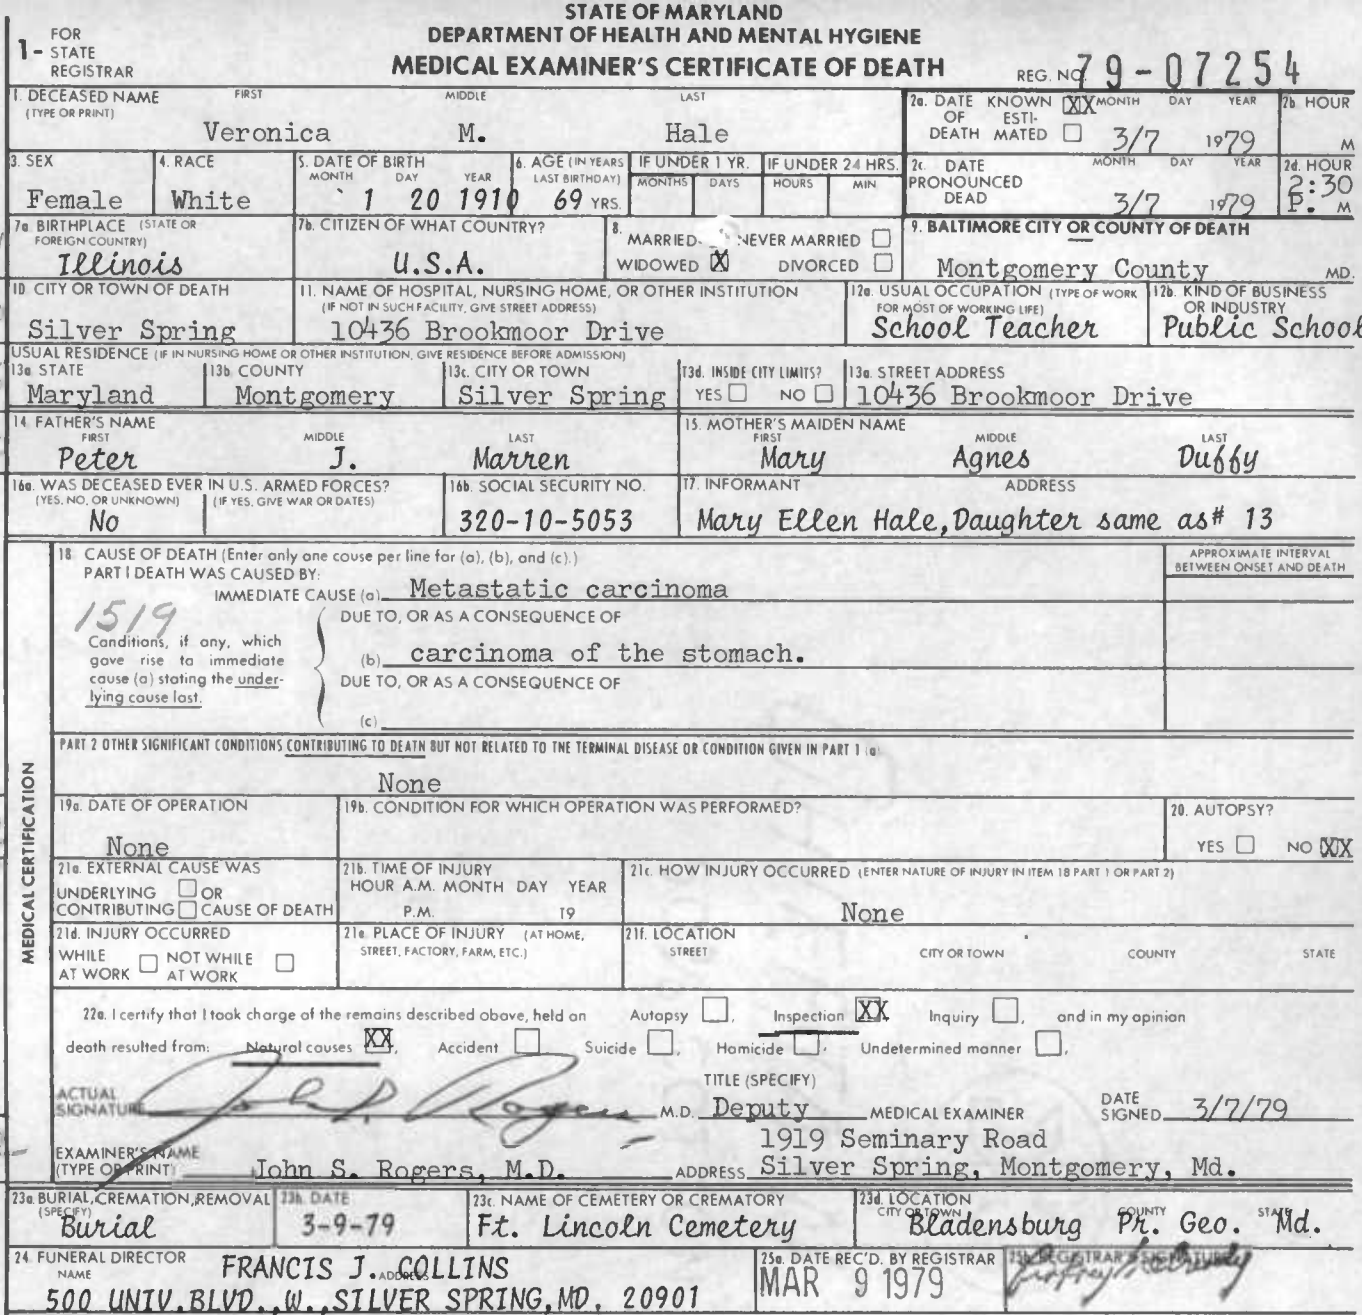 STATE OF MARYLAND
DEPARTMENT OF HEALTH AND MENTAL HYGIENE
MEDICAL EXAMINER'S CERTIFICATE OF DEATH
1- FOR STATE REGISTRAR
REG. NO. 79-07254
1. DECEASED NAME (TYPE OR PRINT) FIRST MIDDLE LAST
Veronica M. Hale
2a. DATE OF DEATH KNOWN XX ESTIMATED MONTH DAY YEAR
3/7 1979
2b. HOUR
M
3. SEX
Female
4. RACE
White
5. DATE OF BIRTH MONTH DAY YEAR
1 20 1910
6. AGE (IN YEARS LAST BIRTHDAY)
69 YRS.
IF UNDER 1 YR. MONTHS DAYS
IF UNDER 24 HRS. HOURS MIN
2c. DATE PRONOUNCED DEAD MONTH DAY YEAR
3/7 1979
2d. HOUR
2:30 P. M
7a. BIRTHPLACE (STATE OR FOREIGN COUNTRY)
Illinois
7b. CITIZEN OF WHAT COUNTRY?
U.S.A.
8. MARRIED NEVER MARRIED
WIDOWED X DIVORCED
9. BALTIMORE CITY OR COUNTY OF DEATH
Montgomery County MD.
10. CITY OR TOWN OF DEATH
Silver Spring
11. NAME OF HOSPITAL, NURSING HOME, OR OTHER INSTITUTION
(IF NOT IN SUCH FACILITY, GIVE STREET ADDRESS)
10436 Brookmoor Drive
12a. USUAL OCCUPATION (TYPE OF WORK FOR MOST OF WORKING LIFE)
School Teacher
12b. KIND OF BUSINESS OR INDUSTRY
Public School
USUAL RESIDENCE (IF IN NURSING HOME OR OTHER INSTITUTION, GIVE RESIDENCE BEFORE ADMISSION)
13a. STATE
Maryland
13b. COUNTY
Montgomery
13c. CITY OR TOWN
Silver Spring
13d. INSIDE CITY LIMITS?
YES NO
13a. STREET ADDRESS
10436 Brookmoor Drive
14 FATHER'S NAME FIRST MIDDLE LAST
Peter J. Marren
15. MOTHER'S MAIDEN NAME FIRST MIDDLE LAST
Mary Agnes Duffy
16a. WAS DECEASED EVER IN U.S. ARMED FORCES?
(YES, NO, OR UNKNOWN) (IF YES, GIVE WAR OR DATES)
No
16b. SOCIAL SECURITY NO.
320-10-5053
17. INFORMANT ADDRESS
Mary Ellen Hale, Daughter same as# 13
MEDICAL CERTIFICATION
18 CAUSE OF DEATH (Enter only one cause per line for (a), (b), and (c).)
PART I DEATH WAS CAUSED BY:
APPROXIMATE INTERVAL BETWEEN ONSET AND DEATH
IMMEDIATE CAUSE (a) Metastatic carcinoma
1519
DUE TO, OR AS A CONSEQUENCE OF
Conditions, if any, which gave rise to immediate cause (a) stating the underlying cause last.
(b) carcinoma of the stomach.
DUE TO, OR AS A CONSEQUENCE OF
(c)
PART 2 OTHER SIGNIFICANT CONDITIONS CONTRIBUTING TO DEATH BUT NOT RELATED TO THE TERMINAL DISEASE OR CONDITION GIVEN IN PART 1 (a)
None
19a. DATE OF OPERATION
None
19b. CONDITION FOR WHICH OPERATION WAS PERFORMED?
20. AUTOPSY?
YES NO XX
21a. EXTERNAL CAUSE WAS
UNDERLYING OR
CONTRIBUTING CAUSE OF DEATH
21b. TIME OF INJURY
HOUR A.M. MONTH DAY YEAR
P.M. 19
21c. HOW INJURY OCCURRED (ENTER NATURE OF INJURY IN ITEM 18 PART 1 OR PART 2)
None
21d. INJURY OCCURRED
WHILE AT WORK NOT WHILE AT WORK
21e. PLACE OF INJURY (AT HOME, STREET, FACTORY, FARM, ETC.)
21f. LOCATION
STREET CITY OR TOWN COUNTY STATE
22a. I certify that I took charge of the remains described above, held an Autopsy , Inspection XX, Inquiry , and in my opinion
death resulted from: Natural causes XX, Accident Suicide , Homicide , Undetermined manner .
ACTUAL SIGNATURE John S. Rogers M.D.
TITLE (SPECIFY)
Deputy MEDICAL EXAMINER
DATE SIGNED 3/7/79
EXAMINER'S NAME (TYPE OR PRINT) John S. Rogers, M.D.
1919 Seminary Road
ADDRESS Silver Spring, Montgomery, Md.
23a. BURIAL, CREMATION, REMOVAL (SPECIFY)
Burial
23b. DATE
3-9-79
23c. NAME OF CEMETERY OR CREMATORY
Ft. Lincoln Cemetery
23d. LOCATION CITY OR TOWN COUNTY STATE
Bladensburg Pr. Geo. Md.
24 FUNERAL DIRECTOR
NAME ADDRESS
FRANCIS J. COLLINS
500 UNIV. BLVD., W., SILVER SPRING, MD. 20901
25a. DATE REC'D. BY REGISTRAR
MAR 9 1979
25b. REGISTRAR'S SIGNATURE